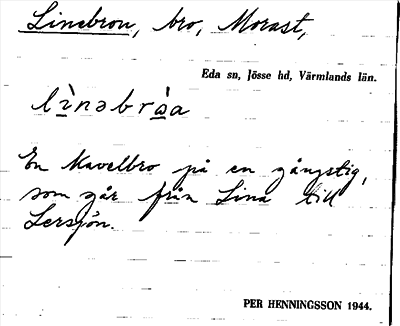 Linebron, bro, Morast,
Eda sn, Jösse hd, Värmlands län.
En Kavelbro på en gångstig,
som går från Lina till
Lersjön.
PER HENNINGSSON 1944.